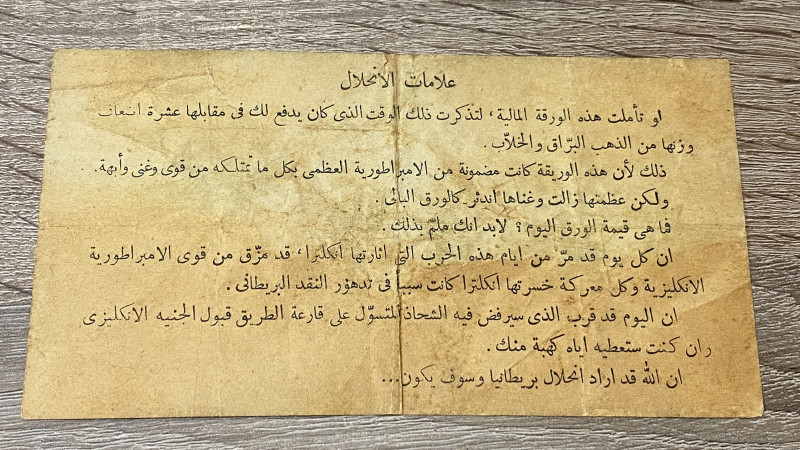 علامات الانحلال
لو تأملت هذه الورقة المالية، لتذكرت ذلك الوقت الذى كان يدفع لك فى مقابلها عشرة اضعاف
وزنها من الذهب البرّاق والخلاّب.
ذلك لأن هذه الوريقة كانت مضمونة من الامبراطورية العظمى بكل ما تمتلكه من قوى وغنى وأبهة.
ولكن عظمتها زالت وغناها اندثر كالورق البالى.
فما هى قيمة الورق اليوم؟ لابد انك ملمّ بذلك.
ان كل يوم قد مرّ من ايام هذه الحرب التى اثارتها انكلترا، قد مزّق من قوى الامبراطورية
الانكليزية وكل معركة خسرتها انكلترا كانت سببا فى تدهور النقد البريطانى.
ان اليوم قد قرب الذى سيرفض فيه الشحاذ المتسوّل على قارعة الطريق قبول الجنيه الانكليزى
وان كنت ستعطيه اياه كهبة منك.
ان الله قد اراد انحلال بريطانيا وسوف يكون...